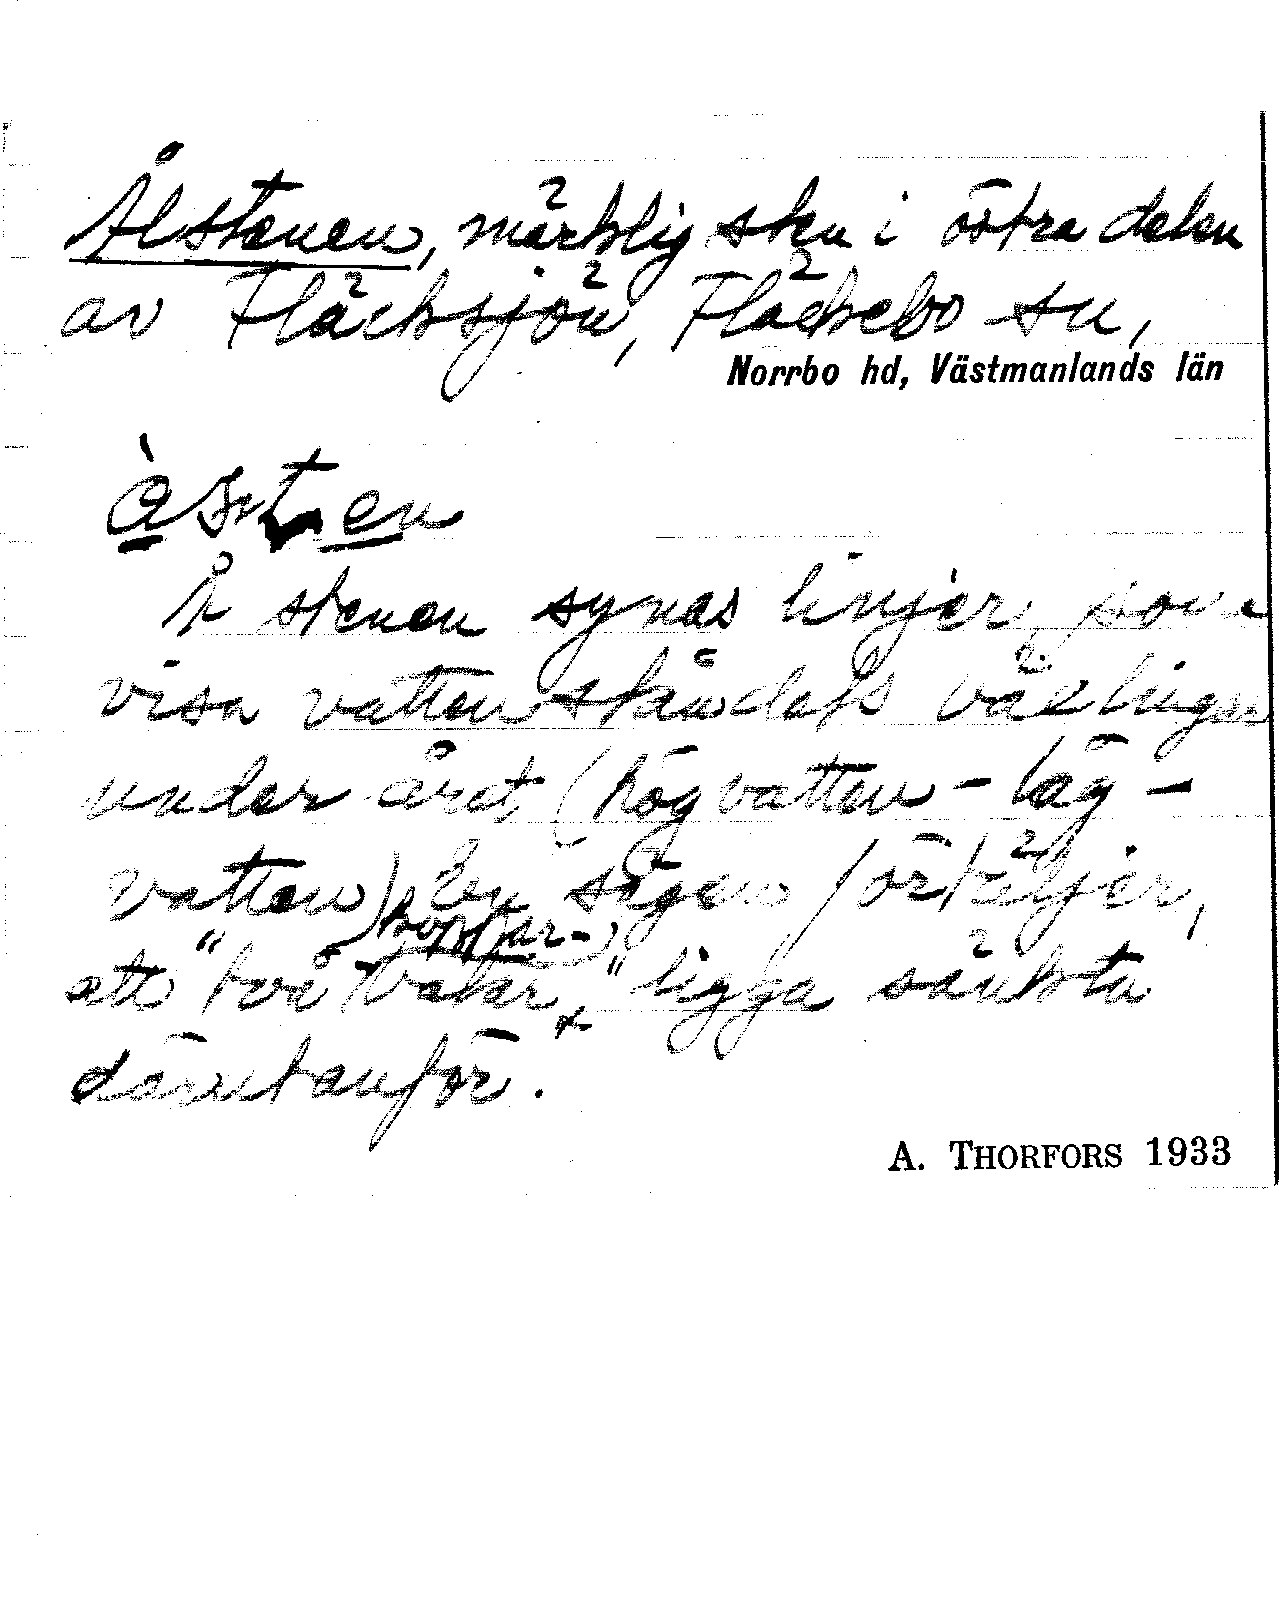 Ålstenen, märklig sten i östra delen
av Fläcksjön, Fläckebo sn,
Norrbo hd, Västmanlands län
Å stenen synas linjer, som
visa vattenståndets växlingar
under året (högvatten - låg-
vatten). En sägen förtäljer,
att "två
ligga sänkta
därutanför.
A. THORFORS 1933